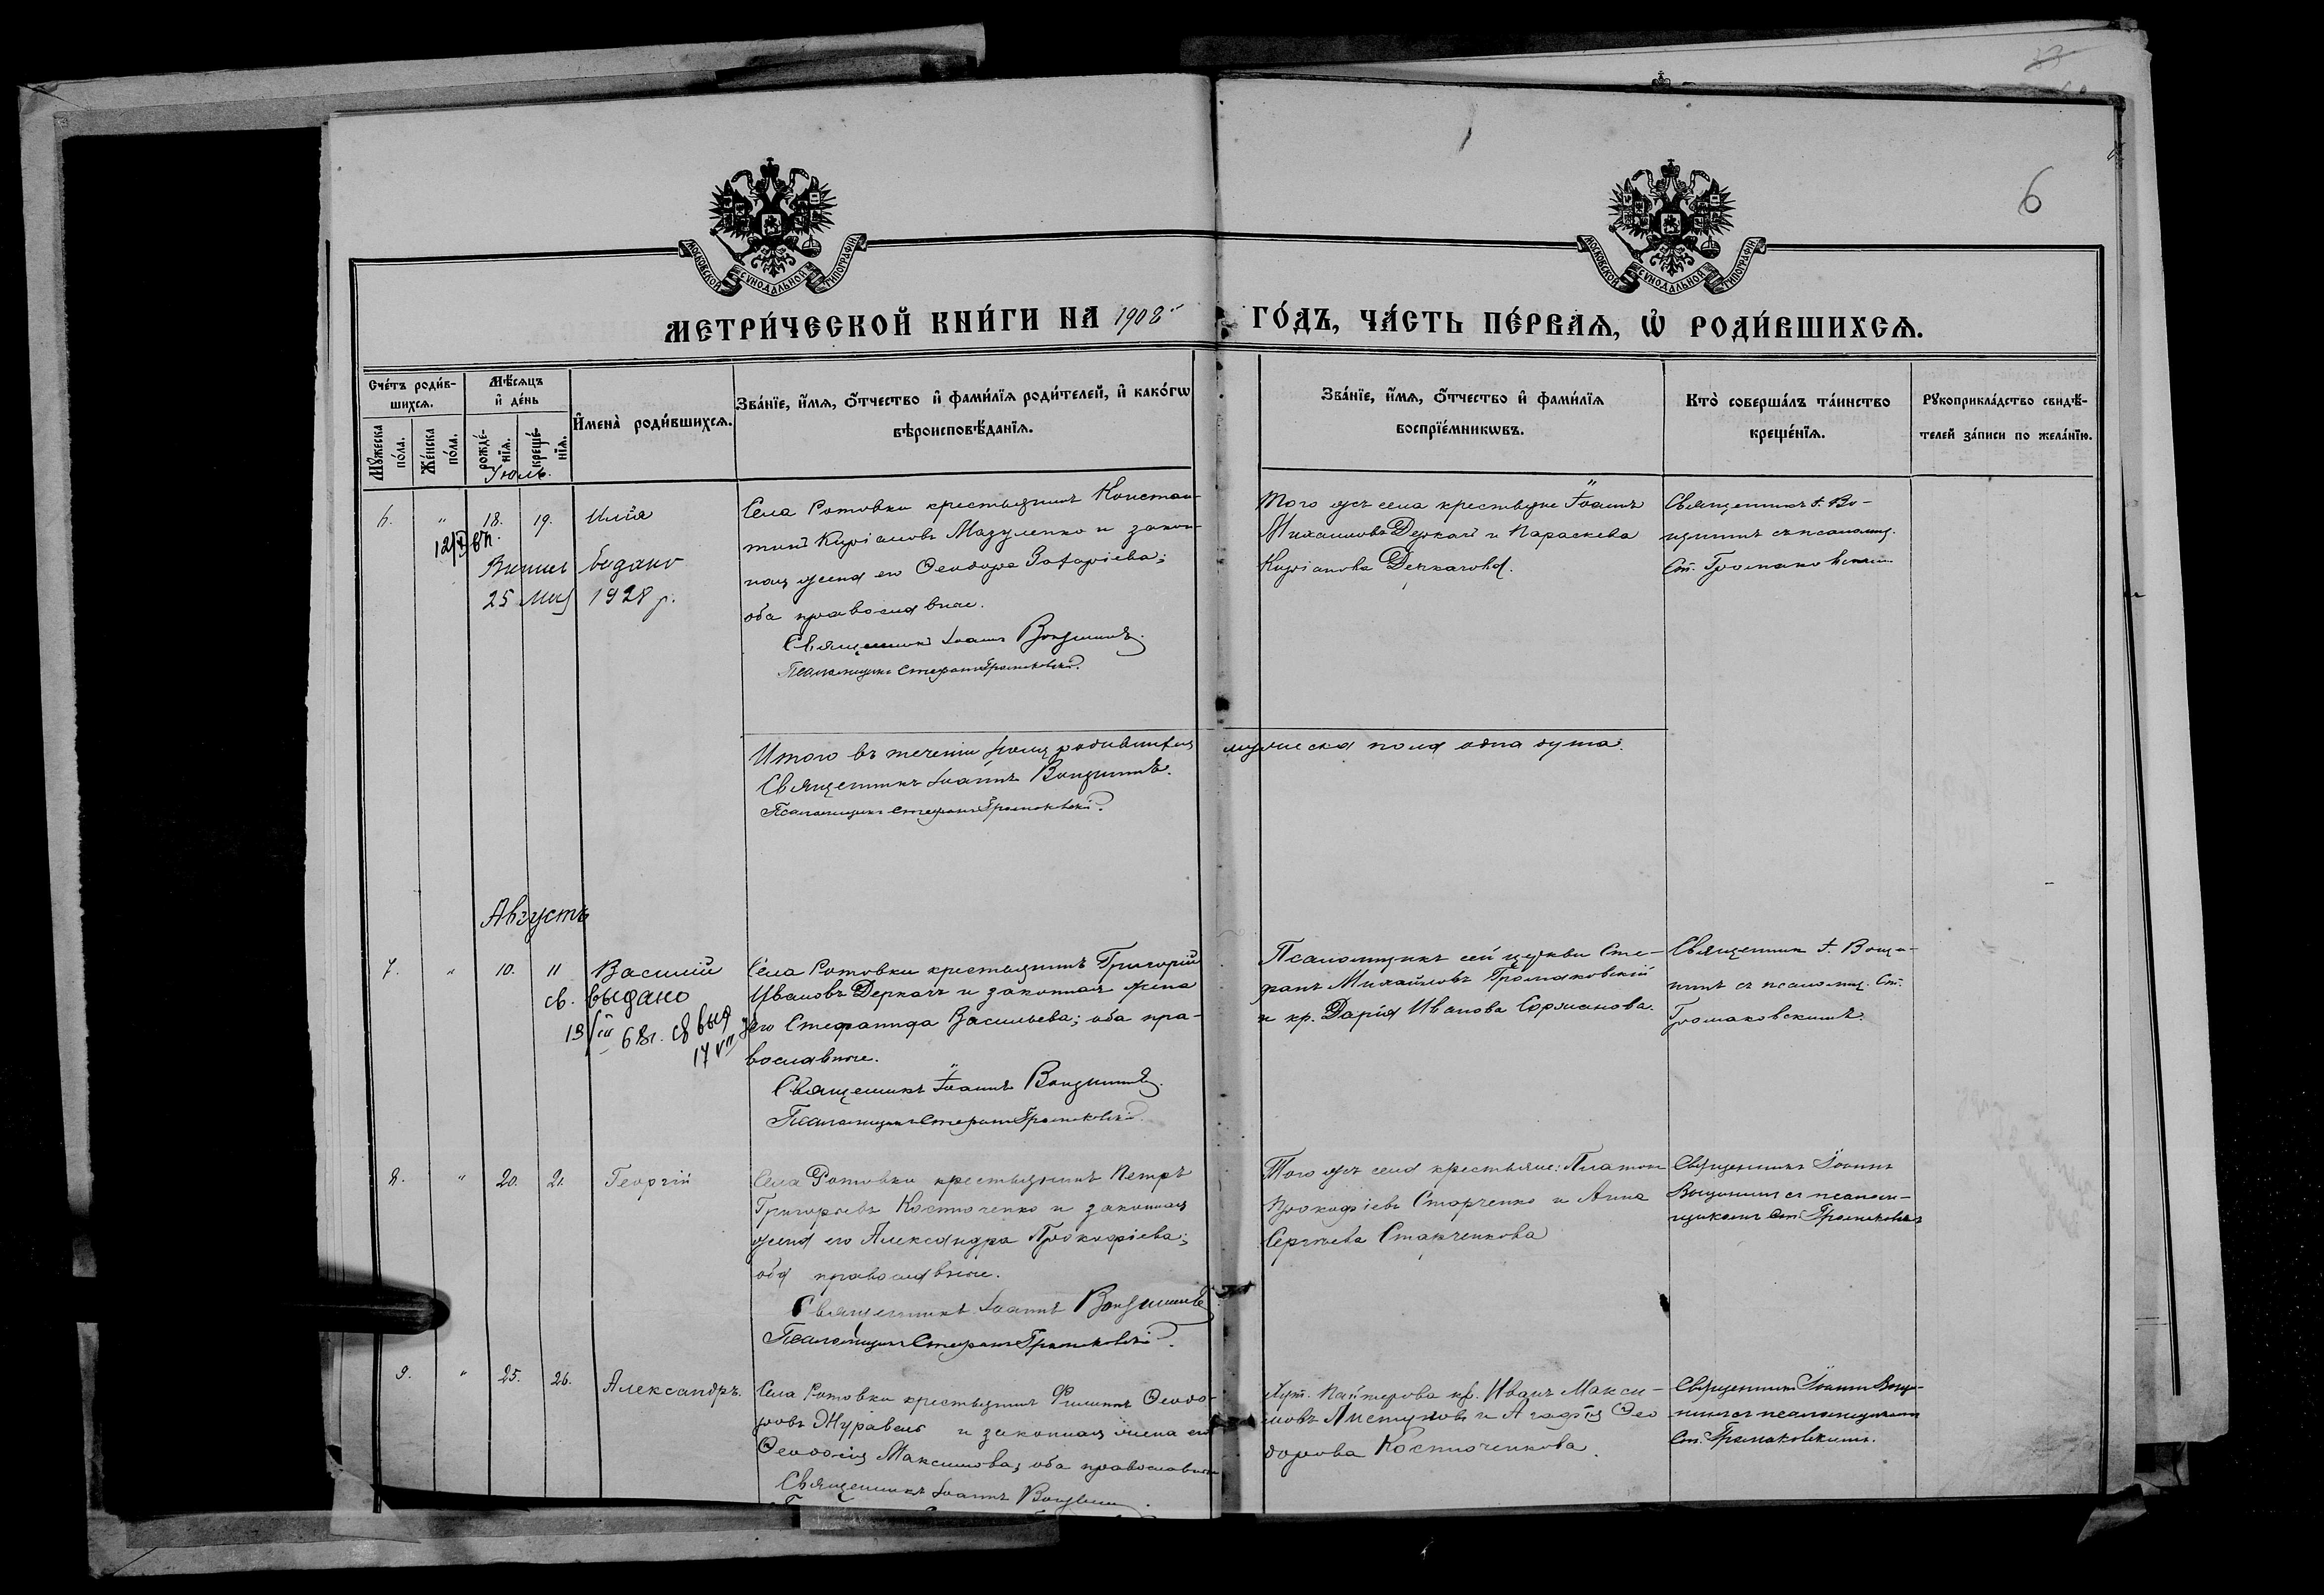 6
МОСКОВСКОЙ СУНОДАЛЬНОЙ ТИПОГРАФІИ
МОСКОВСКОЙ СУНОДАЛЬНОЙ ТИПОГРАФІИ
МЕТРИ́ЧЕСКОЙ КНИ́ГИ НА 1908 ГО́ДЪ, ЧА́СТЬ ПЕ́РВАѦ, Ѡ҆ РОДИ́ВШИХСѦ.
Сче́тъ роди́в-
шихсѧ.
Мꙋ́жеска
по́ла.
Же́нска
по́ла.
Мѣ́сѧцъ
и҆ де́нь
рожде́-
нїѧ.
креще́-
нїѧ.
И҆мена̀ роди́вшихсѧ.
Зва́нїе, и҆́мѧ, ѻ҆́тчество и҆ фами́лїѧ роди́телей, и҆ како́гѡ
вѣроисповѣ́данїѧ.
Зва́нїе, и҆́мѧ, ѻ҆́тчество и҆ фами́лїѧ
воспрїе́мникѡвъ.
Кто̀ соверша́лъ та́инство
креще́нїѧ.
Рꙋкоприкла́дство свидѣ́-
телей за́писи по жела́нїю.
Іюль.
6. " 18. 19. Илія
Выпис видано
25 1928 р.
Села Ротовки крестьянинъ Констан-
тинъ Кирiановъ Мазуленко и закон-
ная жена его Ѳеодора Захаріева;
оба православные.
Священникъ Іоаннъ Вощининъ.
Псаломщикъ Стефанъ Громаковскій.
Того же села крестьяне Іоаннъ
Михаиловъ Деркачъ и Параскева
Кирiанова Деркачова.
Священникъ І. Во-
щининъ съ псаломщ.
Ст. Громаковским
Итого въ теченіи Іюля родившихся мужеска пола одна душа.
Священникъ Іоаннъ Вощининъ.
Псаломщикъ Стефанъ Громаковскій.
Августъ
7. " 10. 11 Василій
св. выдано
Села Ротовки крестьянинъ Григорій
Ивановъ Деркачъ и законная жена
его Стефанида Васильева; оба пра-
вославные.
Священникъ Іоаннъ Вощининъ.
Псаломщикъ Стефанъ Громаковскій.
Псаломщикъ сей церкви Сте-
фанъ Михайловъ Громаковскій
и кр. Дарія Иванова
Священник І. Вощи-
нинъ съ псаломщ. Ст.
Громаковскимъ.
8. " 20. 21. Георгій
Села Ротовки крестьянинъ Петръ
Григорьевъ Костюченко и законная
жена его Александра Прокофіева;
оба православные.
Священникъ Іоаннъ Вощининъ
Псаломщикъ Стефанъ Громаковскій.
Того же села крестьяне: Платонъ
Прокофіевъ Старченко и Анна
Сергѣева Старченкова
Священникъ Іоаннъ
Вощининъ съ псалом-
щикомъ Ст. Громаковскимъ
9. " 25. 26. Александръ.
Села Ротовки крестьянинъ Филиппъ Ѳеодо-
ровъ Журавель и законная жена его
Ѳеодосія Максимова; оба православные
Священникъ Іоаннъ Вощининъ.
Хут. кр. Иванъ Макси-
мовъ и Агафія Ѳео
дорова Костюченкова.
Священникъ Іоаннъ Вощи-
нинъ съ псаломщикомъ
Ст. Громаковскимъ.